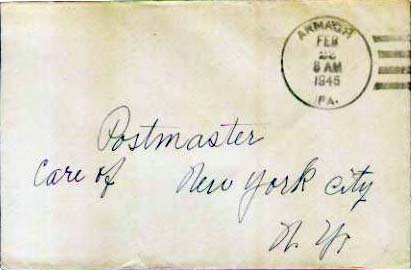 ARMAGH
FEB
8 AM
1945
PA.
Postmaster
Care of New York City
N. Y.